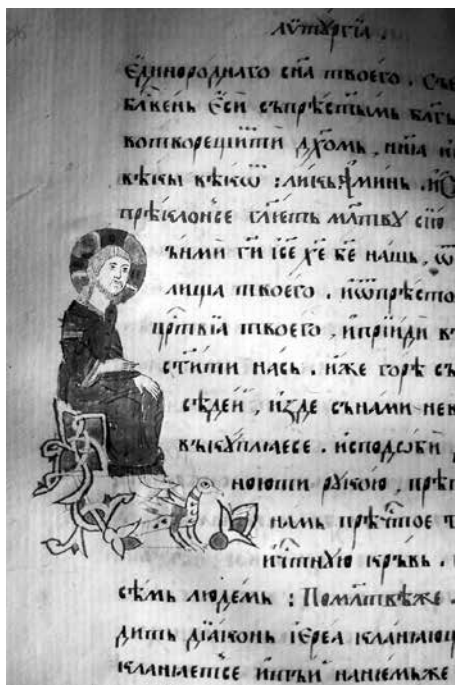 лѵтꙋргїа .
єдинороднаго сна твоего . Съ
блвень єси съпрѣстымь блг
вотворещїити дхомь , ниꙗ и
вѣкы вѣкѡ : ликь Аминь . 
прѣклонсе глѥть млтвꙋ сїю
гї ісе хе бе нашь , ѿ
лища твоего . иѿпрѣсто
црствїа твоего , ипрїиди къ
стїити нась . иже горѣ съ
сѣдеи , изде сънами нев
въ . исподоби
ноюти рꙋкою , прѣ
намь прѣчтое т
ичтнꙋю кръвь .
сѣмь людемь : Помлтвѣже .
дить дїаконь їереа кланꙗющ
кланꙗетсе